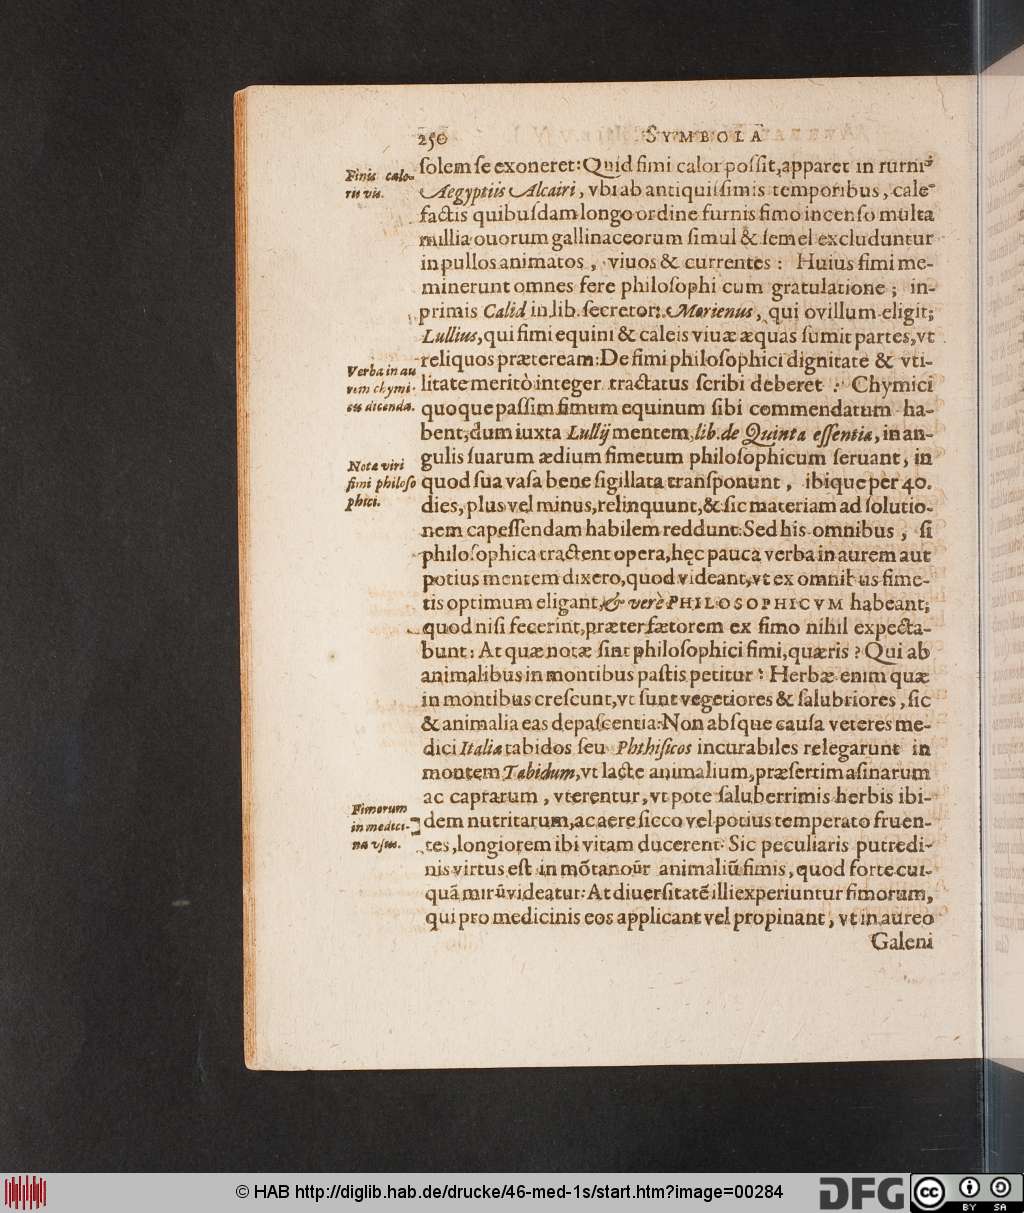 250 SYMBOLA
solem se exoneret: Quid fimi calor possit, apparet in furnis
Aegyptiis Alcairi, vbi ab antiquissimis temporibus, cale-
factis quibusdam longo ordine furnis fimo incenso multa
millia ouorum gallinaceorum simul & semel excluduntur
in pullos animatos, viuos & currentes: Huius fimi me-
minerunt omnes fere philosophi cum gratulatione; in-
primis Calid in lib. secretor. Morienus, qui ovillum eligit;
Lullius, qui fimi equini & calcis viuæ æquas sumit partes, vt
reliquos præteream: De fimi philosophici dignitate & vti-
litate meritò integer tractatus scribi deberet: Chymici
quoque passim fimum equinum sibi commendatum ha-
bent, dum iuxta Lullij mentem, lib. de Quinta essentia, in an-
gulis suarum ædium fimetum philosophicum seruant, in
quod sua vasa bene sigillata transponunt, ibique per 40.
dies, plus vel minus, relinquunt, & sic materiam ad solutio-
nem capessendam habilem reddunt: Sed his omnibus, si
philosophica tractent opera, hęc pauca verba in aurem aut
potius mentem dixero, quod videant, vt ex omnibus fime-
tis optimum eligant, & verè PHILOSOPHICVM habeant;
quod nisi fecerint, præter fætorem ex fimo nihil expecta-
bunt: At quæ notæ sint philosophici fimi, quæris? Qui ab
animalibus in montibus pastis petitur: Herbæ enim quæ
in montibus crescunt, vt sunt vegetiores & salubriores, sic
& animalia eas depascentia: Non absque causa veteres me-
dici Italiæ tabidos seu Phthisicos incurabiles relegarunt in
montem Tabidum, vt lacte animalium, præsertim asinarum
ac caprarum, vterentur, vt pote saluberrimis herbis ibi-
dem nutritarum, ac aere sicco vel potius temperato fruen-
tes, longiorem ibi vitam ducerent: Sic peculiaris putredi-
nis virtus est in mõtanorũ animaliũ fimis, quod forte cui-
quã mirũ videatur: At diuersitatẽ illi experiuntur fimorum,
qui pro medicinis eos applicant vel propinant, vt in aureo
Galeni
Fimi calo-
ris vis.
Verba in au
rem chymi-
cis dicenda.
Nota viri
fimi philoso
phici.
Fimorum
in medici-
na vsus.
© HAB http://diglib.hab.de/drucke/46-med-1s/start.htm?image=00284
DFG
cc
BY SA